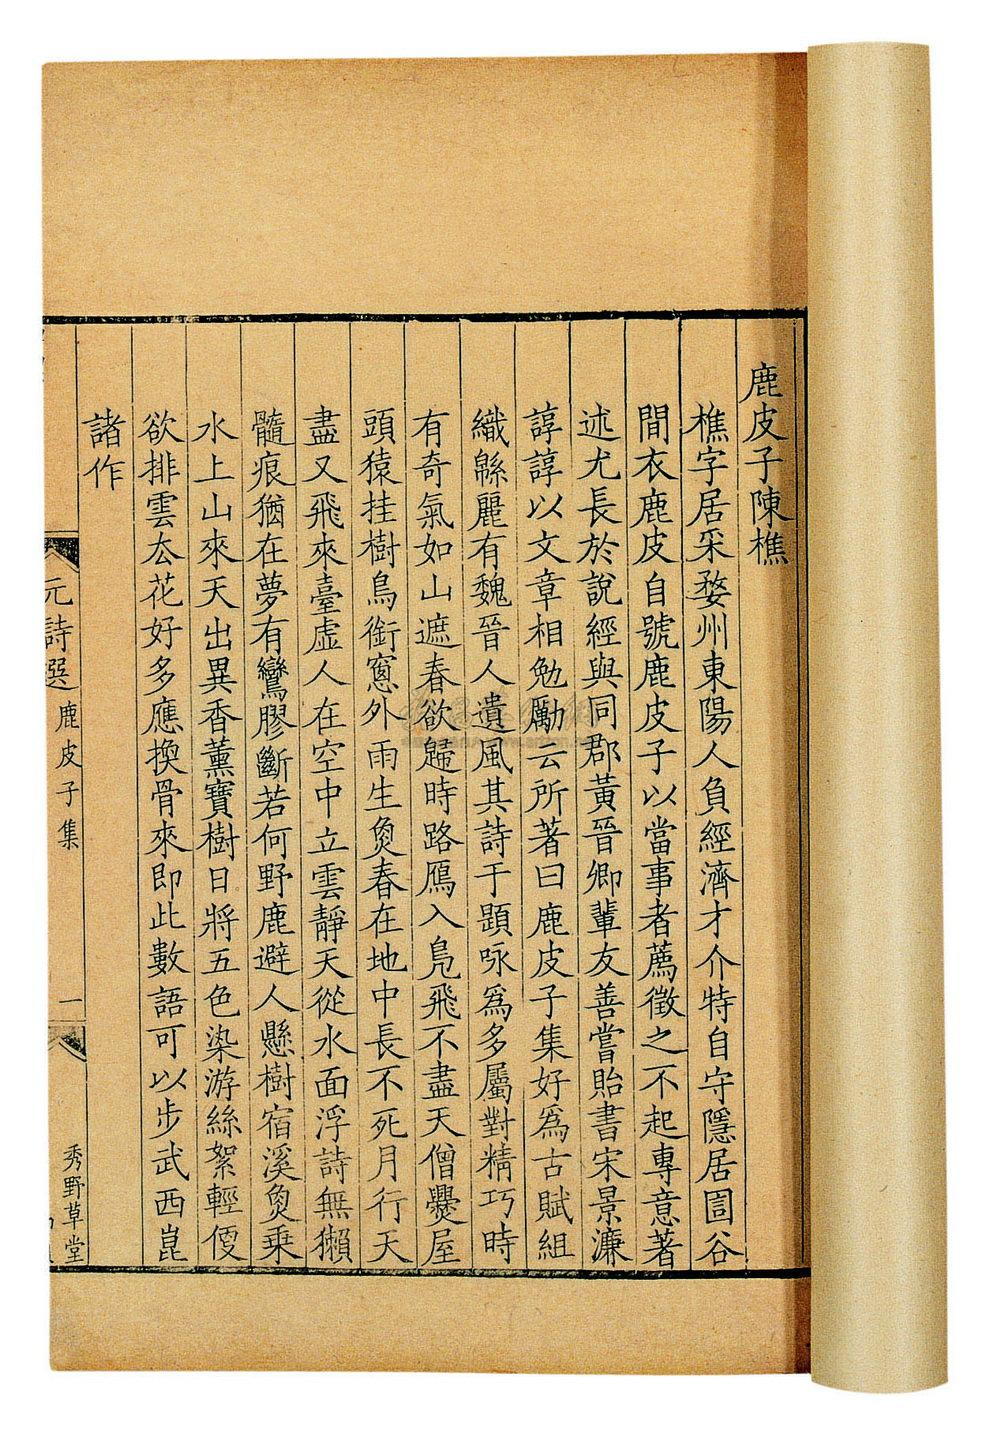 鹿皮子陳樵
樵字居采婺州東陽人負經濟才介特自守隱居圁谷
間衣鹿皮自號鹿皮子以當事者薦徵之不起專意著
述尤長於說經與同郡黃晉卿輩友善嘗貽書宋景濂
諄諄以文章相勉勵云所著曰鹿皮子集好爲古賦組
織緜麗有魏晉人遺風其詩于題咏爲多屬對精巧時
有奇氣如山遮春欲歸時路鴈入鳧飛不盡天僧爨屋
頭猿挂樹鳥銜窻外雨生魚春在地中長不死月行天
盡又飛來臺虛人在空中立雲靜天從水面浮詩無獺
髓痕猶在夢有鸞膠斷若何野鹿避人懸樹宿溪魚乘
水上山來天出異香薰寶樹日將五色染游絲絮輕便
欲排雲厺花好多應換骨來即此數語可以步武西崑
諸作
元詩選 鹿皮子集 一 秀野草堂